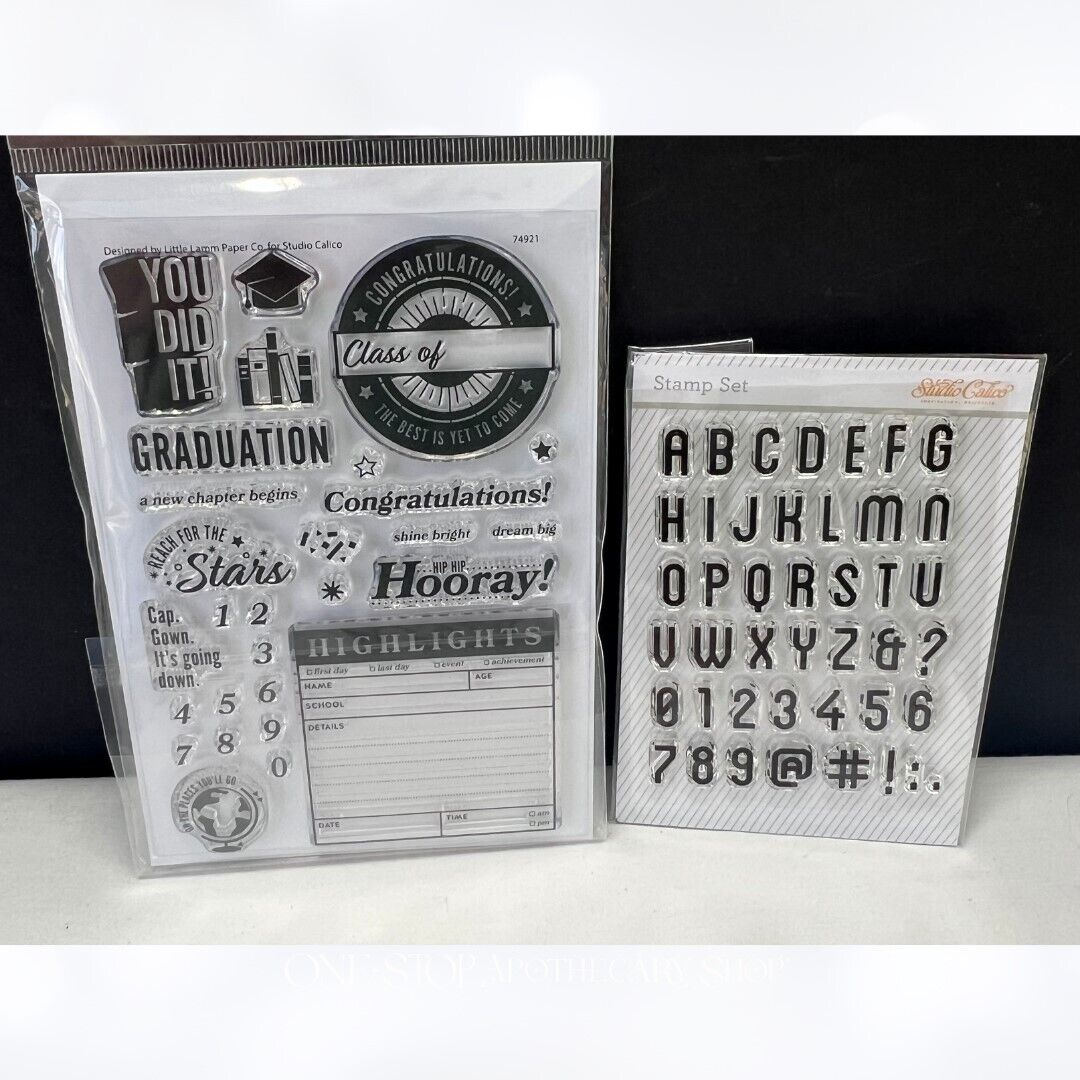 Designed by Little Lamm Paper Co. for Studio Calico
74921
YOU
DID
IT!
CONGRATULATIONS!
Class of
THE BEST IS YET TO COME
GRADUATION
a new chapter begins
Congratulations!
shine bright
dream big
REACH FOR THE
Stars
HIP HIP
Hooray!
Cap.
Gown.
It's going
down.
1 2
3
4 5 6
7 8 9
0
OH THE PLACES YOU'LL GO
HIGHLIGHTS
first day last day event achievement
NAME AGE
SCHOOL
DETAILS
DATE TIME am
pm
Stamp Set
Studio Calico
A B C D E F G
H I J K L M N
O P Q R S T U
V W X Y Z & ?
0 1 2 3 4 5 6
7 8 9 @ # ! : .
ONE-STOP APOTHECARY SHOP